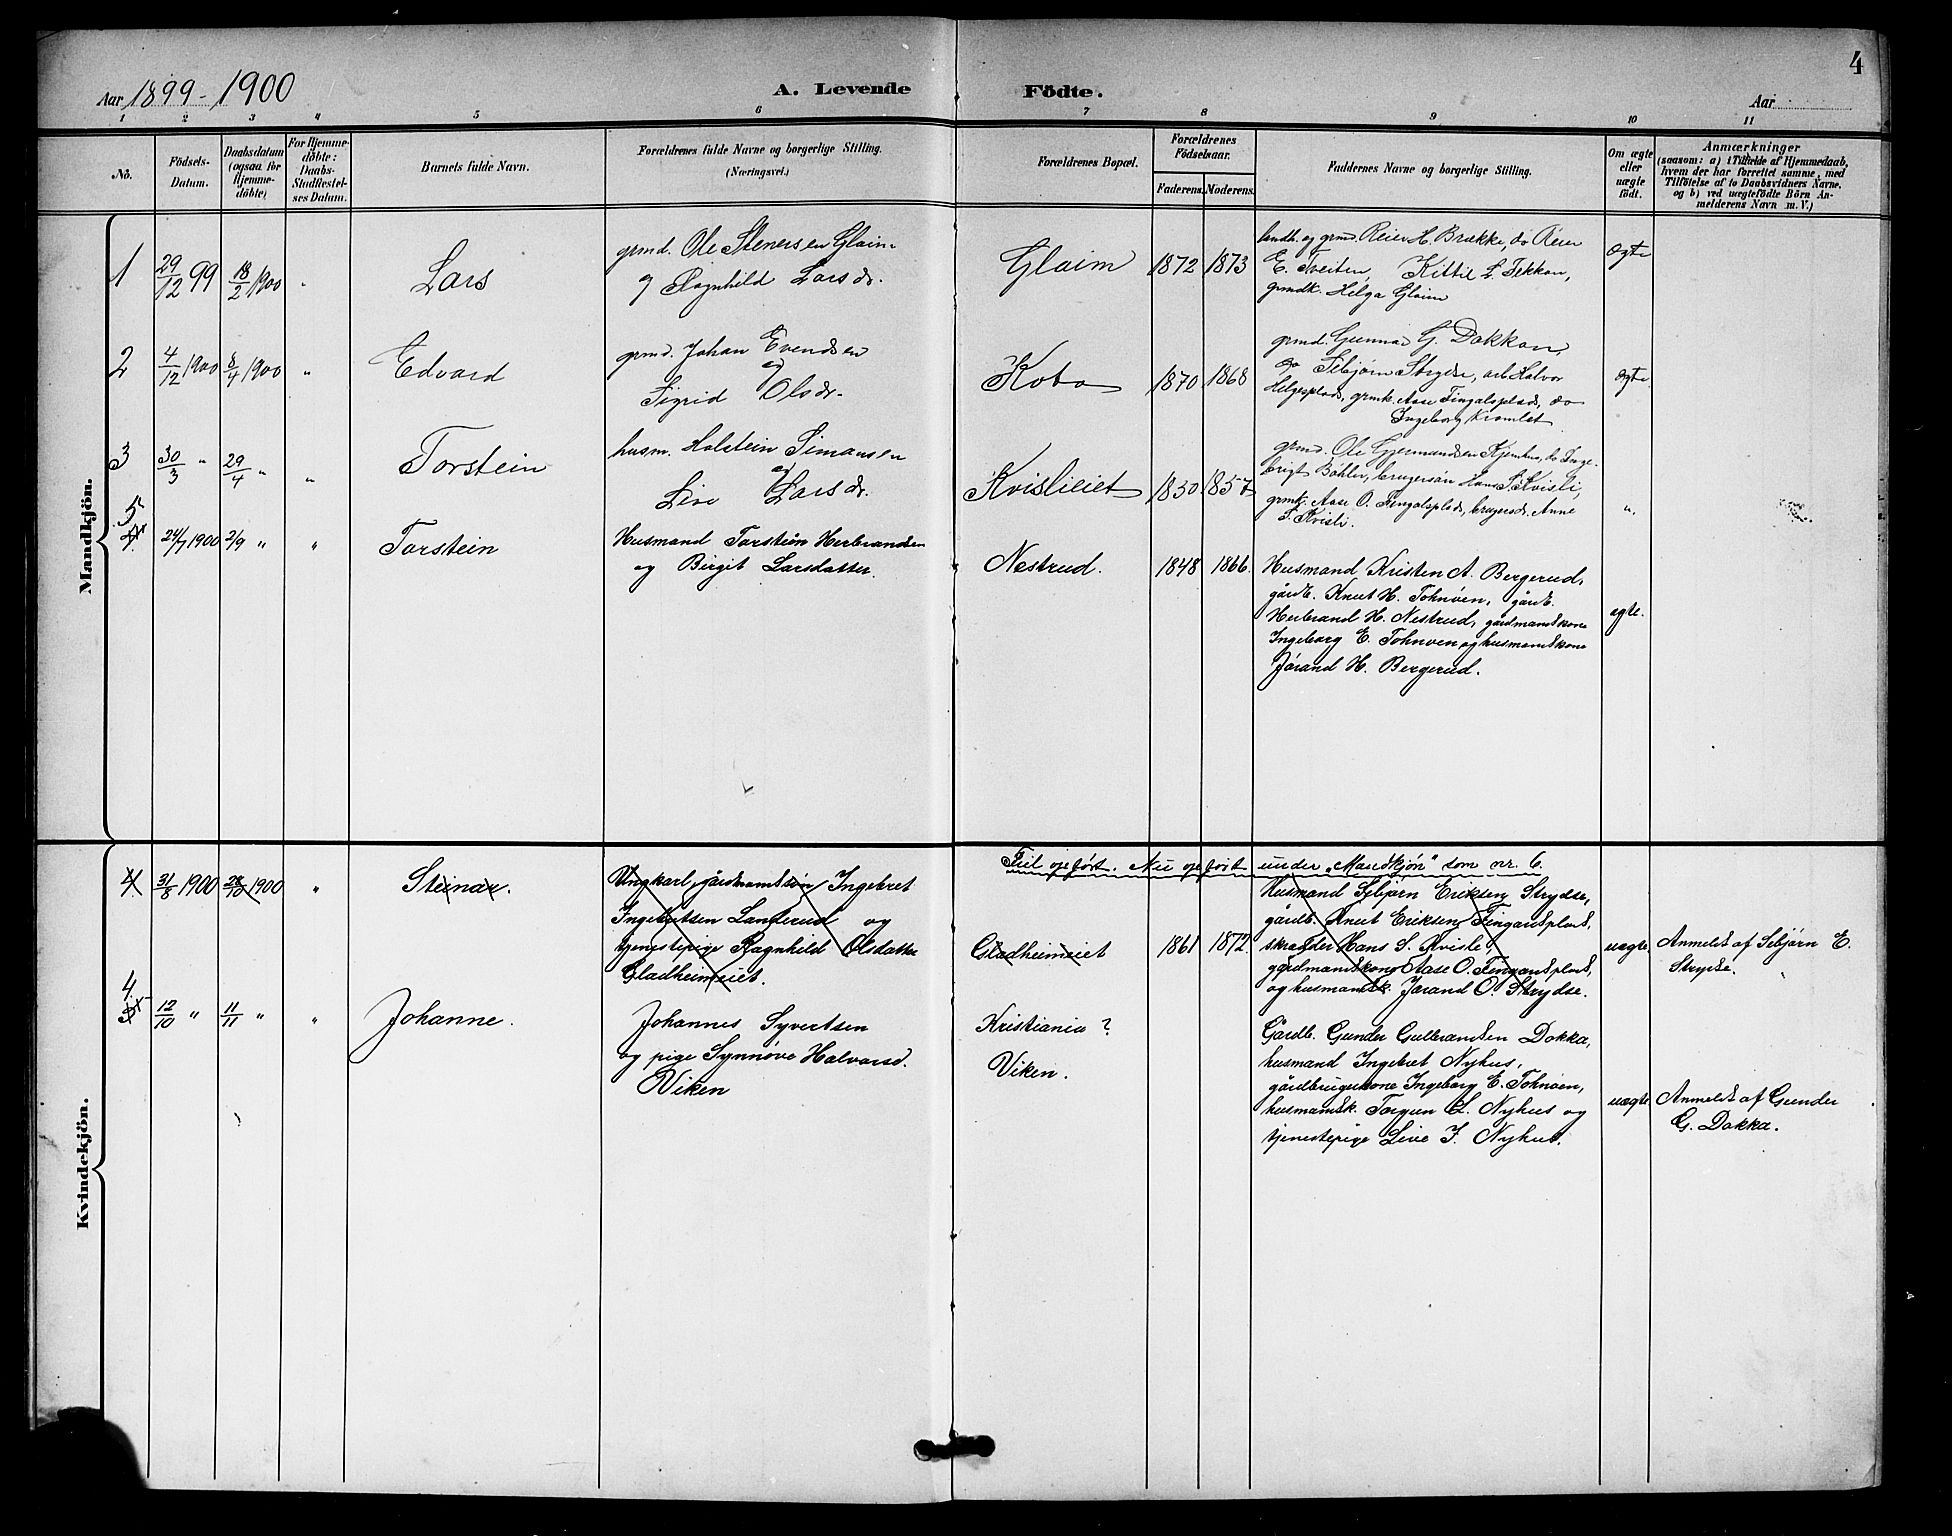 4
Aar 1899-1900
A. Levende Födte.
Aar
1 2 3 4 5 6 7 8 9 10 11
No.
Födsels-
Datum.
Daabsdatum
(ogsaa for
Hjemme-
döbte)
For Hjemme-
döbte:
Daabs-
Stadfæstel-
ses Datum.
Barnets fulde Navn.
Forældrenes fulde Navne og borgerlige Stilling.
(Næringsvei.)
Forældrenes Bopæl.
Forældrenes
Födselsaar.
Faderens. Moderens.
Faddernes Navne og borgerlige Stilling.
Om ægte
eller
uægte
födt.
Anmærkninger
(saasom: a) i Tilfælde af Hjemmedaab,
hvem der har forrettet samme, med
Tilföielse af to Daabsvidners Navne,
og b) ved uægtefödte Börn An-
melderens Navn m. V.)
Mandkjön.
1
29/12 99
18/2 1900
"
Lars
grmd. Ole Stenersen Glaim
og Ragnhild Larsdr.
Glaim
1872 1873
landh. og grmd. Reier H. Brække, do Reier
E. Tveiten, Kittil L. Tekkon,
grmdk. Helga Glaim
ægte
2
4/12 1900
8/4 1900
"
Edvard
grmd. Johan Evendsen
og
Sigrid Olsdr.
Kobo
1870 1868
grmd. Gunnar G. Dokkan,
do Sebjörn Strydse, arb. Halvor
Helgesplads, grmk. Aase Fingalsplads, do
Ingeborg
ægte
3
30/3 "
29/4 "
"
Torstein
husm. Holstein Simonsen
og
Live Larsdr.
Kvislieiet
1850 1857
grmd. Ole Gjermundsen, do Inge-
brigt Böhler, brugersön Hans S. Kvisli,
grmk. Aase O. Fingalsplads, brugersd. Anne
S. Kvisli.
"
5
4.
24/7 1900
2/9 "
"
Torstein
Husmand Torstein Herbrandsen
og Birgit Larsdatter.
Nestrud.
1848 1866.
Husmand Kristen A. Bergerud,
gårdb. Knut H. Tohnöen, gårdb.
Herbrand H. Nestrud, gårdmandskone
Ingeborg E. Tohnöen og husmandskone
Jörand H. Bergerud.
ægte.
Kvindekjön.
Feil opført. Nu opført under „Mandkjön" som nr. 6.
4.
31/8 1900
28/10 1900
"
Steinar.
Ungkarl, gårdmandsön Ingebret
Ingebretsen Lanterud og
tjenestepige Ragnhild Olsdatter
Gladheimeiet.
Gladheimeiet
1861 1872.
Husmand Sebjörn Eriksen Strydse,
gårdb. Knut Eriksen Fingardsplads,
skrædder Hans S. Kvisle
gårdmandskone Aase O. Fingardsplads,
og husmandsk. Jørand O. Strydse.
uægte
Anmeldt af Sebjörn E.
Strydse.
4.
5.
12/10 "
11/11 "
"
Johanne.
Johannes Syvertsen
og pige Synnöve Halvorsd.
Viken
Kristiania?
Viken.
Gårdb. Gunder Gulbrandsen Dokka,
husmand Ingebret Nyhus,
gårdbrugerkone Ingeborg E. Tohnöen,
husmandsk. Torgun L. Nyhus og
tjenestepige Live I. Nyhus.
uægte
Anmeldt af Gunder
G. Dokka.